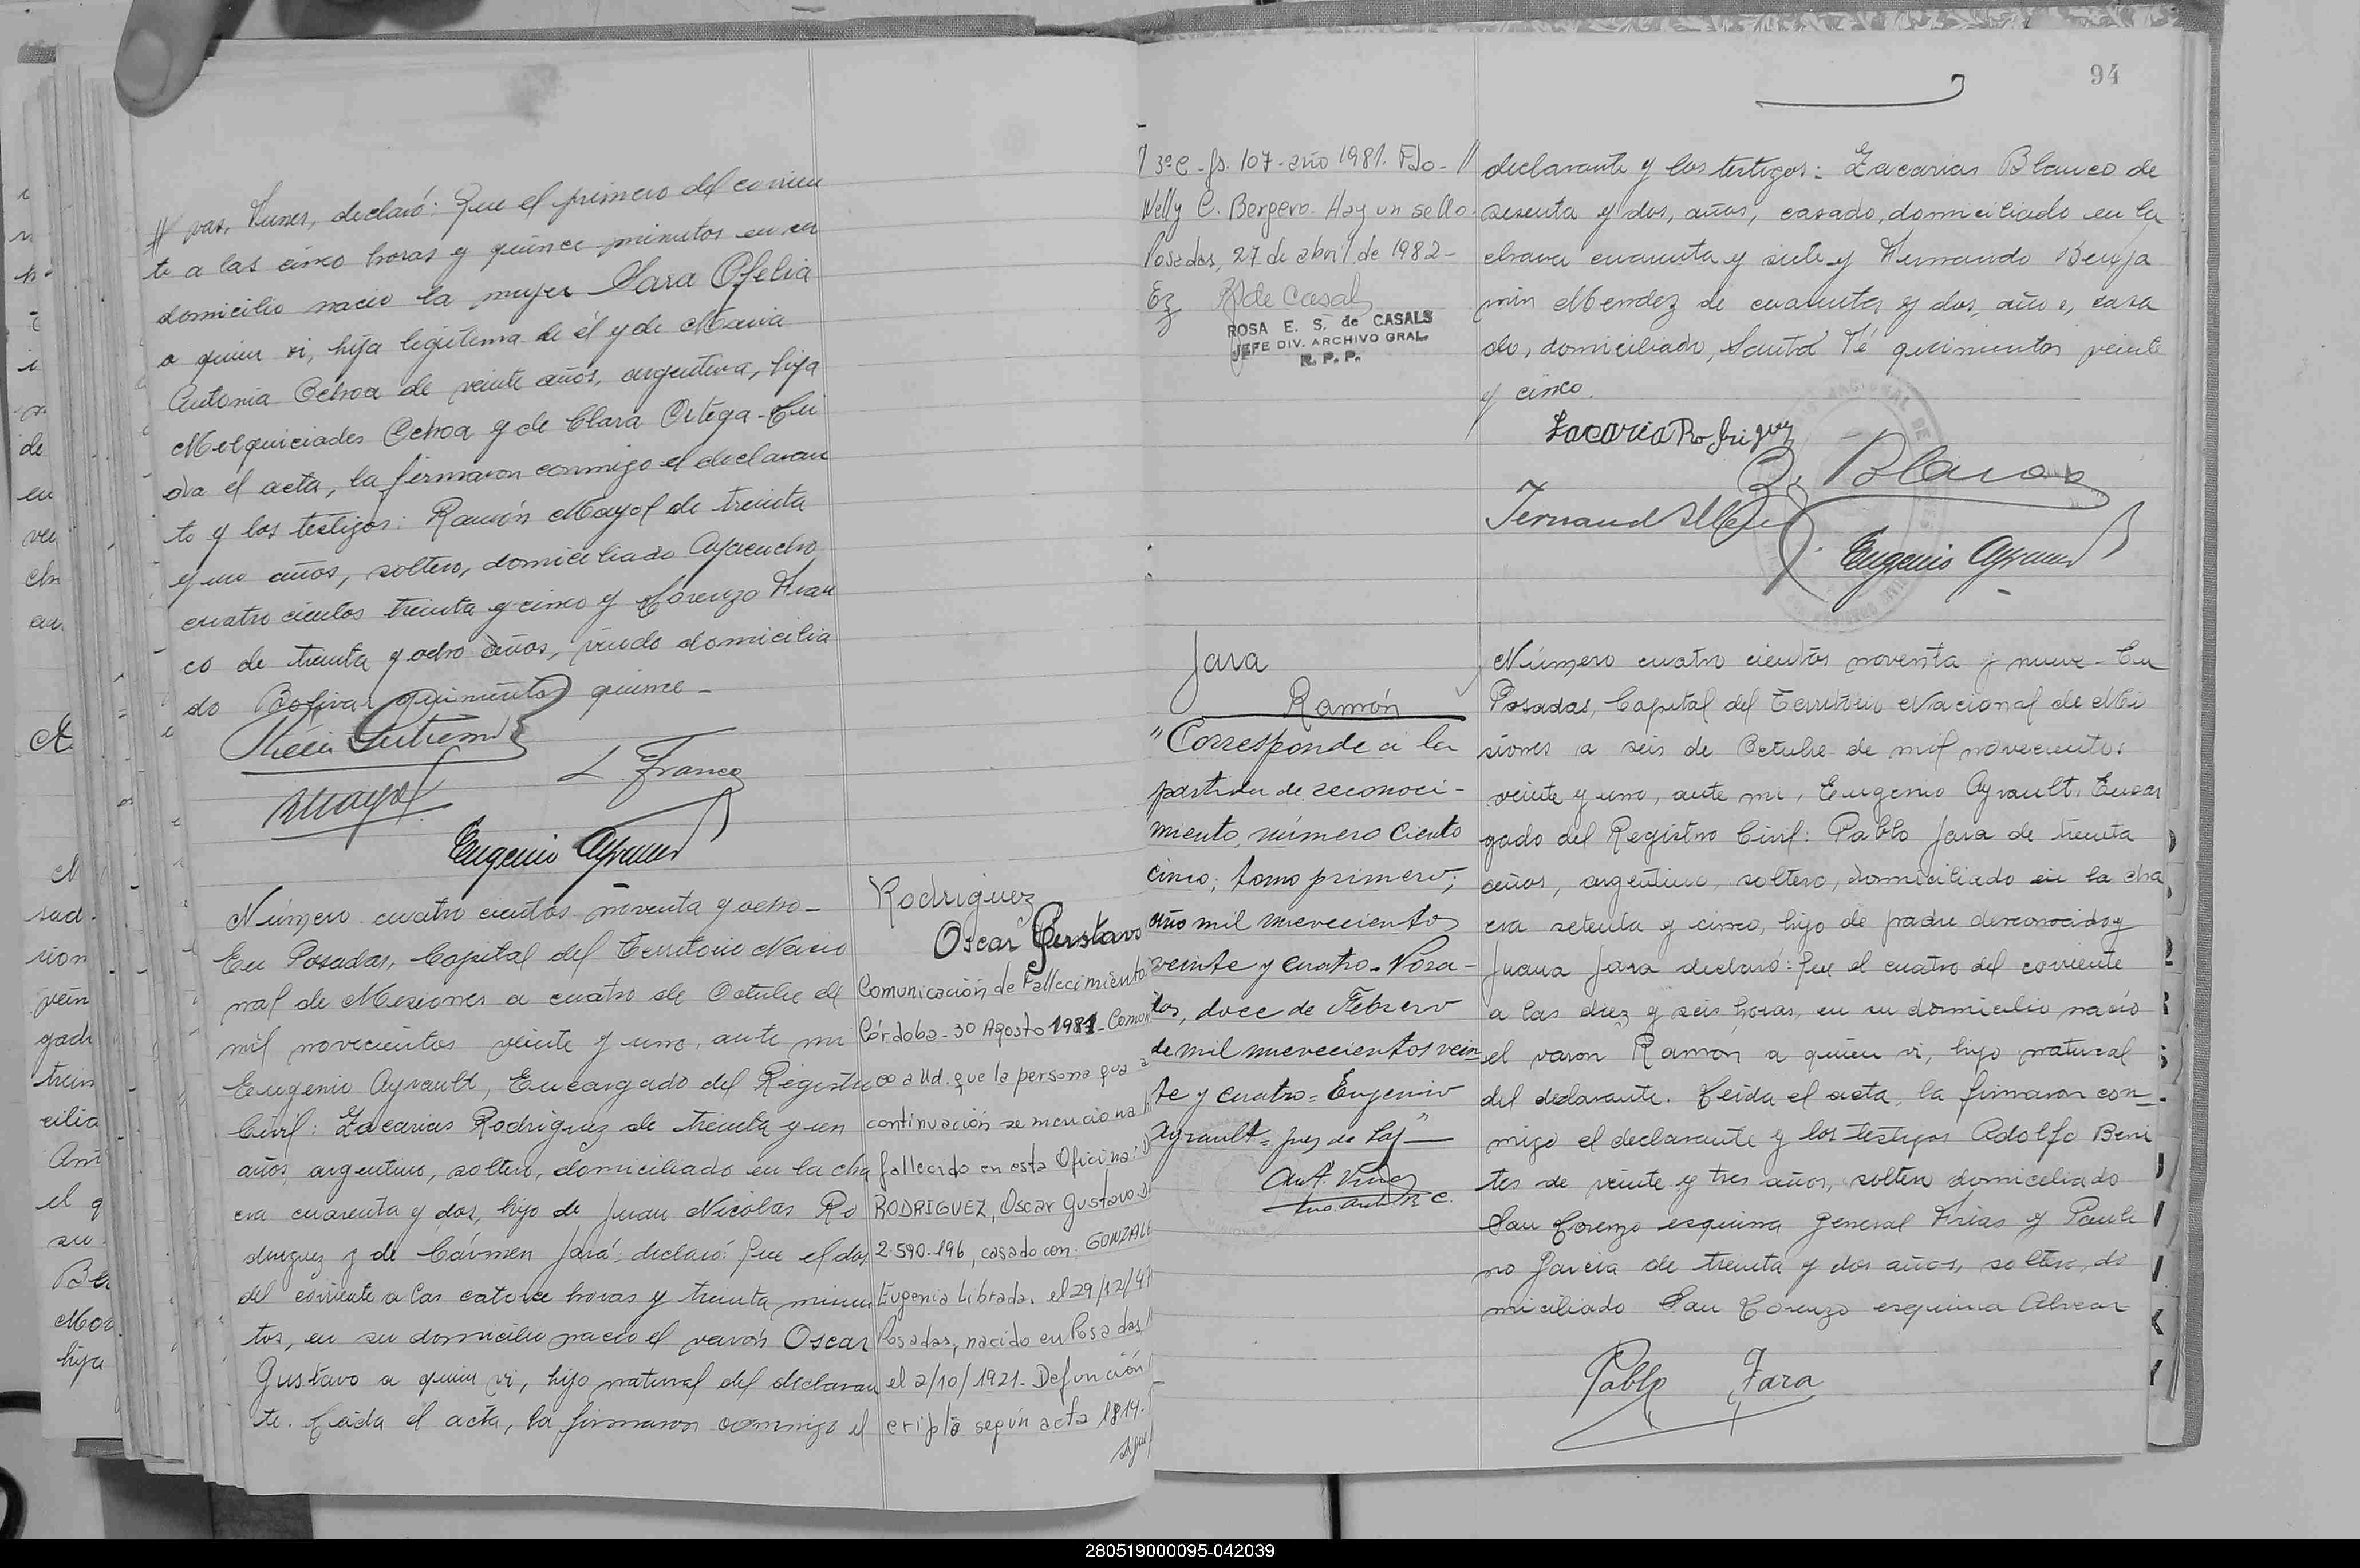 // vas, Nunes, declaró: Que el primero del corrien
te a las cinco horas y quince minutos en su
domicilio nació la mujer Sara Ofelia
a quien vi, hija legitima de él y de Maria
Antonia Ochoa de veinte años, argentina, hija
Melquiciades Ochoa y de Clara Ortega - Lei
da el acta, la firmaron conmigo el declaran
te y los testigos: Ramón Mayol de treinta
y uno años, soltero, domiciliado Ayacucho
cuatro cientos treinta y cinco y Lorenzo Fran
co de treinta y ocho años, viudo domicilia
do Bolivar quinientos quince -
L. Franco
RMayol
Eugenio Ayrault
Número cuatro cientos noventa y ocho -
En Posadas, Capital del Territorio Nacio
nal de Misiones a cuatro de Octubre de
mil novecientos veinte y uno, ante mi
Eugenio Ayrault, Encargado del Registro
Civil: Zacarias Rodriguez de treinta y un
años, argentino, soltero, domiciliado en la cha
cra cuarenta y dos, hijo de Juan Nicolas Ro
driguez y de Cármen Jara declaró: Que el dos
del corriente a las catorce horas y treinta minu
tos, en su domicilio nació el varón Oscar
Gustavo a quien vi, hijo natural del declaran
te. Leida el acta, la firmaron conmigo el
Rodriguez
Oscar Gustavo
Comunicación de Fallecimiento
Córdoba - 30 Agosto 1981 - Comuni
co a Ud. que la persona que a
continuación se menciona h
fallecido en esta Oficina:
RODRIGUEZ, Oscar Gustavo. D
2.590.196, casado con: GONZALE
Eugenia Librada, el 29/12/47
Posadas, nacido en Posadas
el 2/10/1921 - Defunción
cripta según acta 1814.
94
3ª C - fs. 107 - año 1981. Fdo - //
Nelly C. Bergero. Hay un sello.
Posadas, 27 de abril de 1982 -
R de Casals
ROSA E. S. de CASALS
JEFE DIV. ARCHIVO GRAL.
R. P. P.
declarante y los testigos: Zacarias Blanco de
sesenta y dos, años, casado, domiciliado en la
chacra cuarenta y siete y Fernando Benja
min Mendez de cuarenta y dos, años, casa
do, domiciliado, Santa Fé quinientos veinte
y cinco.
Zacaria Rodriguez
Z. Blanco
Eugenio Ayrault
Jara
Ramón
"Corresponde a la
partida de reconoci-
miento, número ciento
cinco; tomo primero;
año mil novecientos
veinte y cuatro - Posa-
das, doce de Febrero
de mil novecientos vein
te y cuatro = Eugenio
Ayrault = Juez de Paz"
Número cuatro cientos noventa y nueve - En
Posadas, Capital del Territorio Nacional de Mi
siones a seis de Octubre de mil novecientos
veinte y uno, ante mi, Eugenio Ayrault, Encar
gado del Registro Civil: Pablo Jara de treinta
años, argentino, soltero, domiciliado en la cha
cra setenta y cinco, hijo de padre desconocido y
Juana Jara declaró: Que el cuatro del corriente
a las diez y seis horas, en su domicilio nació
el varon Ramón a quien vi, hijo natural
del declarante. Leida el acta, la firmaron con-
migo el declarante y los testigos Adolfo Beni
tes de veinte y tres años, soltero domiciliado
San Lorenzo esquina General Frias y Pauli
no Garcia de treinta y dos años, soltero, do
miciliado San Lorenzo esquina Alvear
Pablo Jara
280519000095-042039